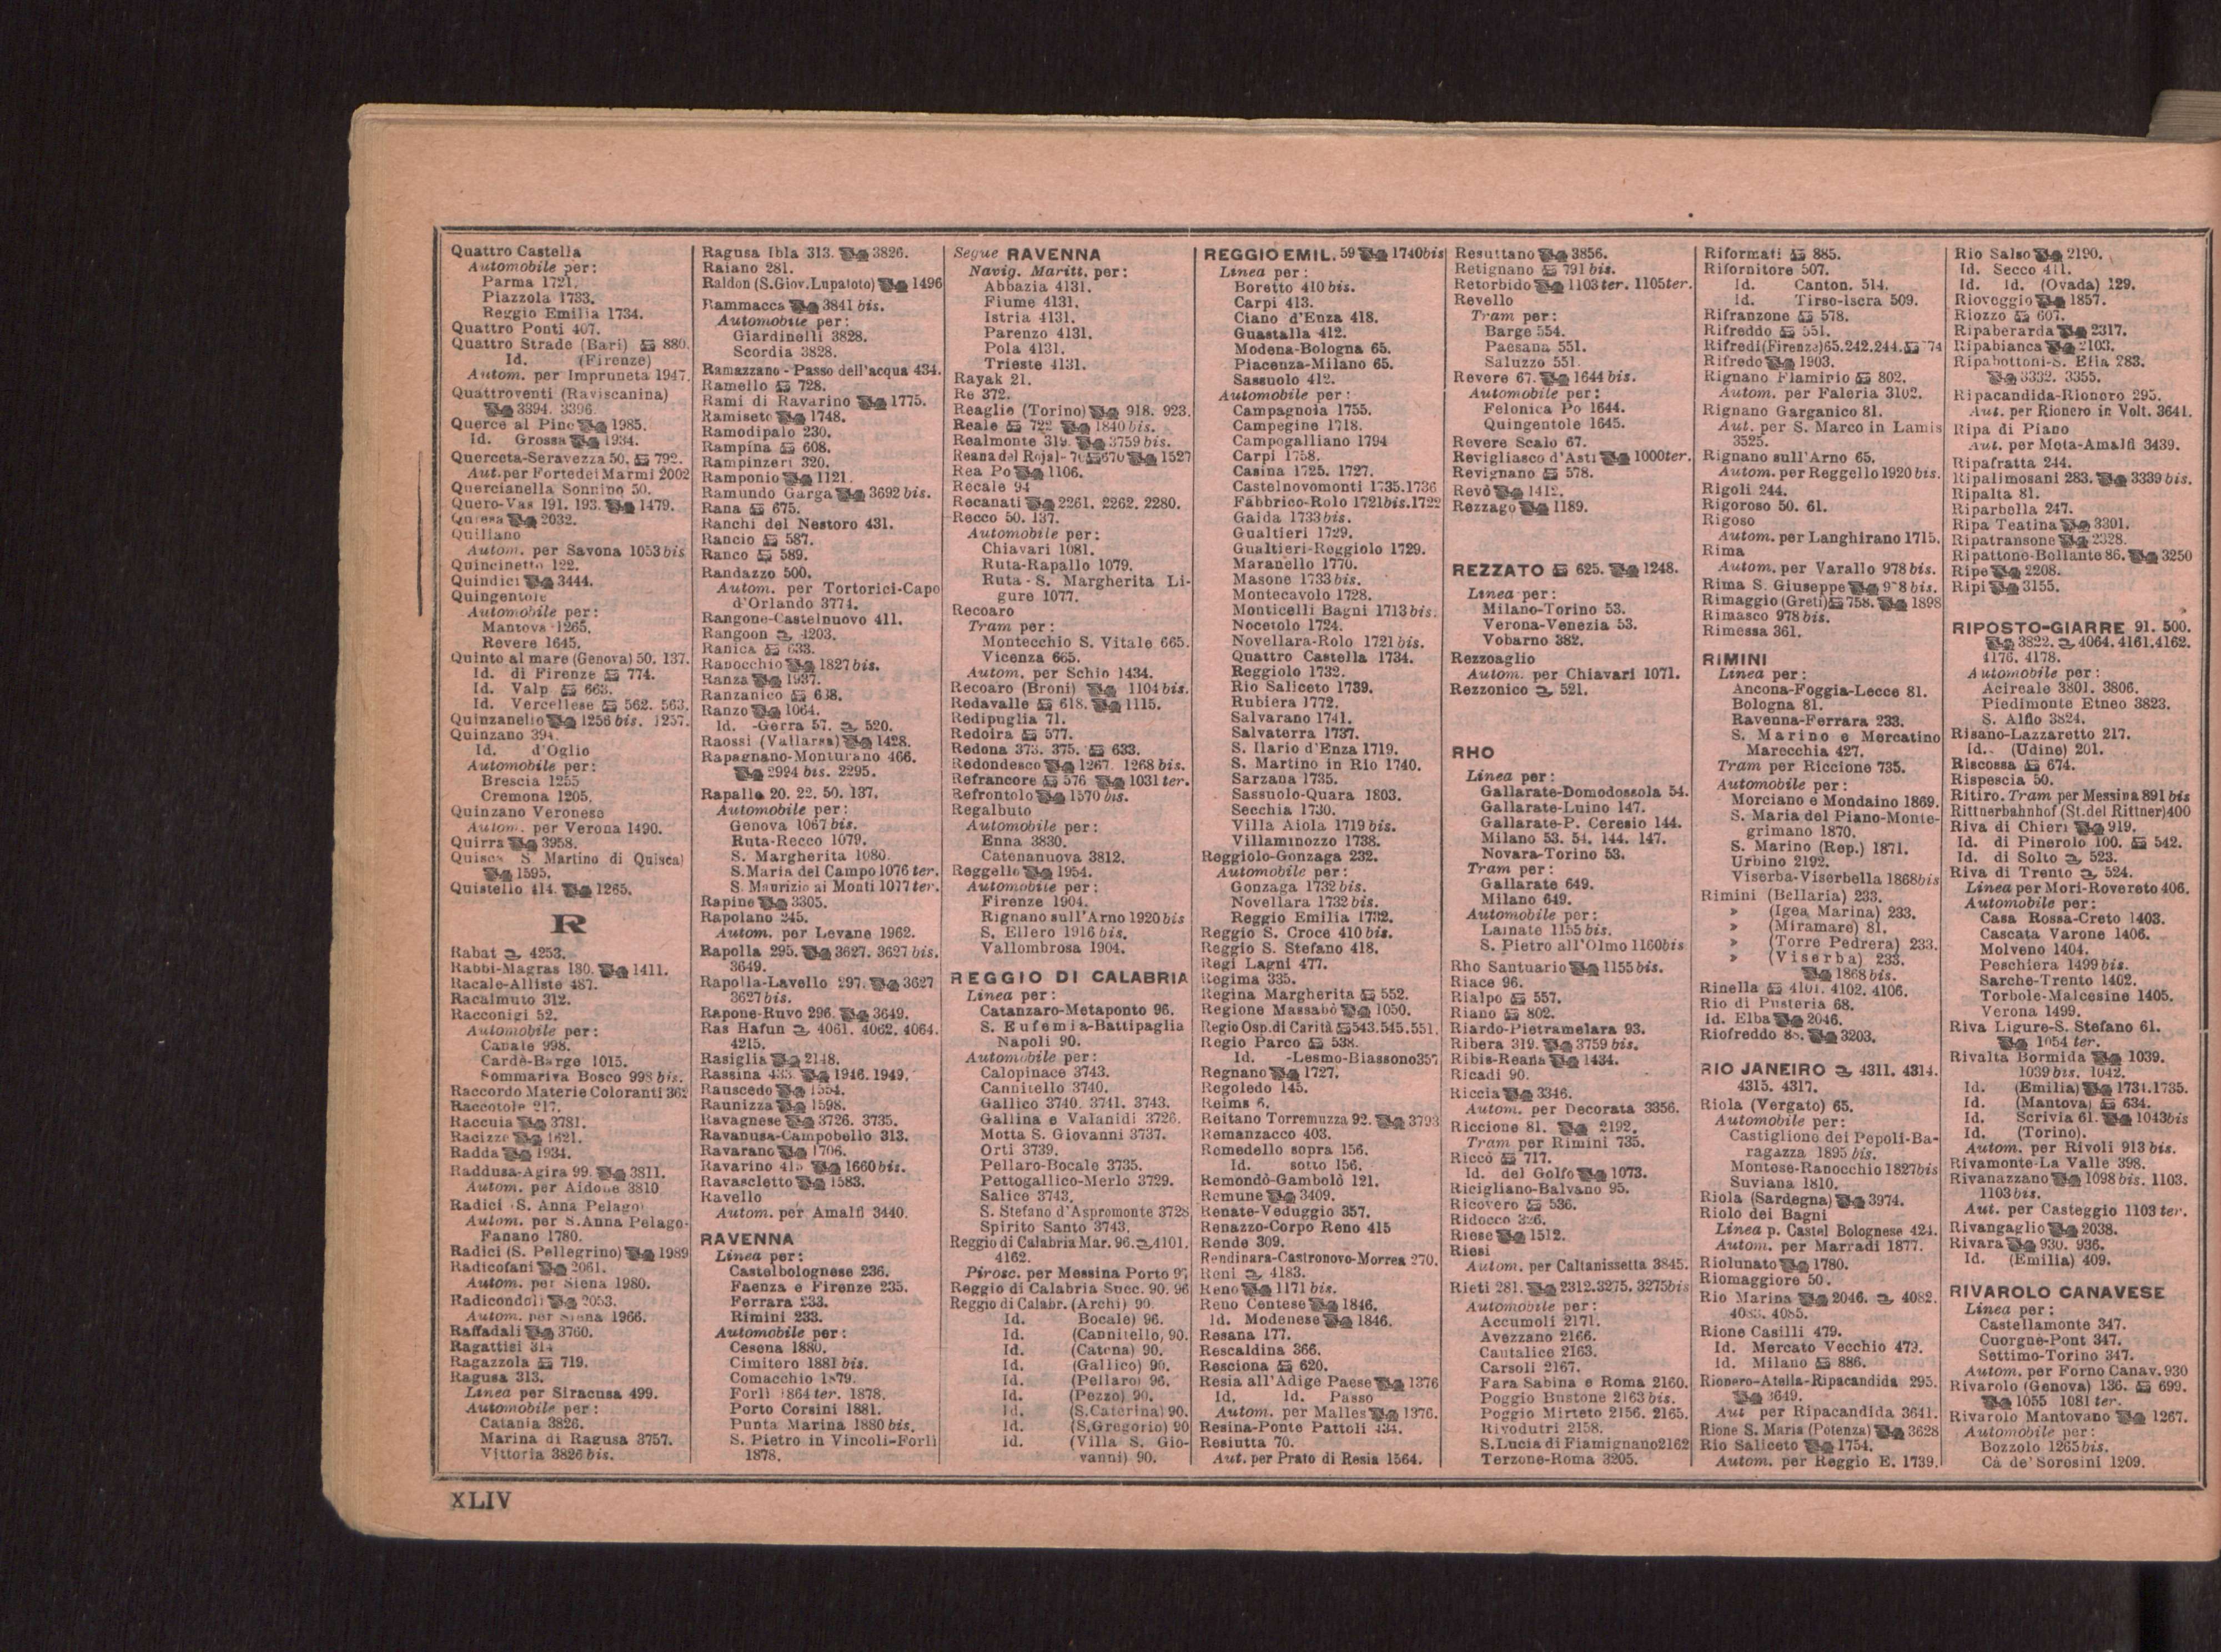 Quattro Castella
Automobile per:
Parma 1721.
Piazzola 1733.
Reggio Emilia 1734.
Quattro Ponti 407.
Quattro Strade (Bari) 880.
Id. (Firenze)
Autom. per Impruneta 1947.
Quattroventi (Raviscanina)
3394. 3396
Querce al Pino 1985.
Id. Grossa 1934.
Querceta-Seravezza 50. 792.
Aut. per Forte dei Marmi 2002
Quercianella Sonnino 50.
Quero-Vas 191. 193. 1479.
Quiesa 2032.
Quiliano
Autom. per Savona 1053 bis
Quincinetto 122.
Quindici 3444.
Quingentole
Automobile per:
Mantova 1265.
Revere 1645.
Quinto al mare (Genova) 50. 137.
Id. di Firenze 774.
Id. Valp 663.
Id. Vercellese 562. 563.
Quinzanello 1256 bis. 1257.
Quinzano 394.
Id. d'Oglio
Automobile per:
Brescia 1255
Cremona 1205.
Quinzano Veronese
Autom. per Verona 1490.
Quirra 3958.
Quisca S. Martino di Quisca)
1595.
Quistello 414. 1265.
R
Rabat 4253.
Rabbi-Magras 180. 1411.
Racale-Alliste 487.
Racalmuto 312.
Racconigi 52.
Automobile per:
Canale 998.
Cardè-Barge 1015.
Sommariva Bosco 998 bis.
Raccordo Materie Coloranti 362
Raccotole 217.
Raccuia 3781.
Racizze 1621.
Radda 1934.
Raddusa-Agira 99. 3811.
Autom. per Aidone 3810
Radici (S. Anna Pelago)
Autom. per S. Anna Pelago-
Fanano 1780.
Radici (S. Pellegrino) 1989
Radicofani 2061.
Autom. per Siena 1980.
Radicondoli 2053.
Autom. per Siena 1966.
Raffadali 3760.
Ragattisi 314
Ragazzola 719.
Ragusa 313.
Linea per Siracusa 499.
Automobile per:
Catania 3826.
Marina di Ragusa 3757.
Vittoria 3826 bis.
Ragusa Ibla 313. 3826.
Raiano 281.
Raldon (S. Giov. Lupatoto) 1496
Rammacca 3841 bis.
Automobile per:
Giardinelli 3828.
Scordia 3828.
Ramazzano - Passo dell'acqua 434.
Ramello 728.
Rami di Ravarino 1775.
Ramiseto 1748.
Ramodipalo 230.
Rampina 608.
Rampinzeri 320.
Ramponio 1121.
Ramundo Garga 3692 bis.
Rana 675.
Ranchi del Nestoro 431.
Rancio 587.
Ranco 589.
Randazzo 500.
Autom. per Tortorici-Capo
d'Orlando 3774.
Rangone-Castelnuovo 411.
Rangoon 4203.
Ranica 633.
Ranocchio 1827 bis.
Ranza 1937.
Ranzanico 638.
Ranzo 1064.
Id. -Gerra 57. 520.
Raossi (Vallarsa) 1428.
Rapagnano-Monturano 466.
2294 bis. 2295.
Rapallo 20. 22. 50. 137.
Automobile per:
Genova 1067 bis.
Ruta-Recco 1079.
S. Margherita 1080.
S. Maria del Campo 1076 ter.
S. Maurizio ai Monti 1077 ter.
Rapine 3305.
Rapolano 245.
Autom. per Levane 1962.
Rapolla 295. 3627. 3627 bis.
3649.
Rapolla-Lavello 297. 3627
3627 bis.
Rapone-Ruvo 296. 3649.
Ras Hafun 4061. 4062. 4064.
4215.
Rasiglia 2148.
Rassina 433. 1946. 1949.
Rauscedo 1554.
Raunizza 1598.
Ravagnese 3726. 3735.
Ravanusa-Campobello 313.
Ravarano 1706.
Ravarino 415 1660 bis.
Ravascletto 1583.
Ravello
Autom. per Amalfi 3440.
RAVENNA
Linea per:
Castelbolognese 236.
Faenza e Firenze 235.
Ferrara 233.
Rimini 233.
Automobile per:
Cesena 1880.
Cimitero 1881 bis.
Comacchio 1879.
Forlì 1864 ter. 1878.
Porto Corsini 1881.
Punta Marina 1880 bis.
S. Pietro in Vincoli-Forlì
1878.
Segue RAVENNA
Navig. Maritt. per:
Abbazia 4131.
Fiume 4131.
Istria 4131.
Parenzo 4131.
Pola 4131.
Trieste 4131.
Rayak 21.
Re 372.
Reaglie (Torino) 918. 923.
Reale 722 1840 bis.
Realmonte 319. 3759 bis.
Reana del Rojal- 70 670 1527
Rea Po 1106.
Recale 94
Recanati 2261. 2262. 2280.
Recco 50. 137.
Automobile per:
Chiavari 1081.
Ruta-Rapallo 1079.
Ruta - S. Margherita Li-
gure 1077.
Recoaro
Tram per:
Montecchio S. Vitale 665.
Vicenza 665.
Autom. per Schio 1434.
Recoaro (Broni) 1104 bis.
Redavalle 618. 1115.
Redipuglia 71.
Redoira 577.
Redona 373. 375. 633.
Redondesco 1267. 1268 bis.
Refrancore 576 1031 ter.
Refrontolo 1570 bis.
Regalbuto
Automobile per:
Enna 3830.
Catenanuova 3812.
Reggello 1954.
Automobile per:
Firenze 1904.
Rignano sull'Arno 1920 bis
S. Ellero 1916 bis.
Vallombrosa 1904.
REGGIO DI CALABRIA
Linea per:
Catanzaro-Metaponto 96.
S. Eufemia-Battipaglia
Napoli 90.
Automobile per:
Calopinace 3743.
Cannitello 3740.
Gallico 3740. 3741. 3743.
Gallina e Valanidi 3726.
Motta S. Giovanni 3737.
Orti 3739.
Pellaro-Bocale 3735.
Pettogallico-Merlo 3729.
Salice 3743.
S. Stefano d'Aspromonte 3728
Spirito Santo 3743.
Reggio di Calabria Mar. 96. 4101.
4162.
Pirosc. per Messina Porto 97
Reggio di Calabria Succ. 90. 96
Reggio di Calabr. (Archi) 90.
Id. Bocale) 96.
Id. (Cannitello, 90.
Id. (Catona) 90.
Id. (Gallico) 90.
Id. (Pellaro) 96.
Id. (Pezzo) 90.
Id. (S. Caterina) 90.
Id. (S. Gregorio) 90
Id. (Villa S. Gio-
vanni) 90.
REGGIO EMIL. 59 1740 bis
Linea per:
Boretto 410 bis.
Carpi 413.
Ciano d'Enza 418.
Guastalla 412.
Modena-Bologna 65.
Piacenza-Milano 65.
Sassuolo 412.
Automobile per:
Campagnola 1755.
Campegine 1718.
Campogalliano 1794
Carpi 1758.
Casina 1725. 1727.
Castelnovomonti 1735. 1736
Fabbrico-Rolo 1721 bis. 1722
Gaida 1733 bis.
Gualtieri 1729.
Gualtieri-Reggiolo 1729.
Maranello 1770.
Masone 1733 bis.
Montecavolo 1728.
Monticelli Bagni 1713 bis.
Nocetolo 1724.
Novellara-Rolo 1721 bis.
Quattro Castella 1734.
Reggiolo 1732.
Rio Saliceto 1739.
Rubiera 1772.
Salvarano 1741.
Salvaterra 1737.
S. Ilario d'Enza 1719.
S. Martino in Rio 1740.
Sarzana 1735.
Sassuolo-Quara 1803.
Secchia 1730.
Villa Aiola 1719 bis.
Villaminozzo 1738.
Reggiolo-Gonzaga 232.
Automobile per:
Gonzaga 1732 bis.
Novellara 1732 bis.
Reggio Emilia 1732.
Reggio S. Croce 410 bis.
Reggio S. Stefano 418.
Regi Lagni 477.
Regima 335.
Regina Margherita 552.
Regione Massabò 1050.
Regio Osp. di Carità 543. 545. 551.
Regio Parco 538.
Id. -Lesmo-Biassono 357
Regnano 1727.
Regoledo 145.
Reims 6.
Reitano Torremuzza 92. 3793
Remanzacco 403.
Remedello sopra 156.
Id. sotto 156.
Remondò-Gambolò 121.
Remune 3409.
Renate-Veduggio 357.
Renazzo-Corpo Reno 415
Rende 309.
Rendinara-Castronovo-Morrea 270.
Reni 4183.
Reno 1171 bis.
Reno Centese 1846.
Id. Modenese 1846.
Resana 177.
Rescaldina 366.
Resciona 620.
Resia all'Adige Paese 1376
Id. Id. Passo
Autom. per Malles 1376.
Resina-Ponte Pattoli 434.
Resiutta 70.
Aut. per Prato di Resia 1564.
Resuttano 3856.
Retignano 791 bis.
Retorbido 1103 ter. 1105 ter.
Revello
Tram per:
Barge 554.
Paesana 551.
Saluzzo 551.
Revere 67. 1644 bis.
Automobile per:
Felonica Po 1644.
Quingentole 1645.
Revere Scalo 67.
Revigliasco d'Asti 1000 ter.
Revignano 578.
Revò 1412.
Rezzago 1189.
REZZATO 625. 1248.
Linea per:
Milano-Torino 53.
Verona-Venezia 53.
Vobarno 382.
Rezzoaglio
Autom. per Chiavari 1071.
Rezzonico 521.
RHO
Linea per:
Gallarate-Domodossola 54.
Gallarate-Luino 147.
Gallarate-P. Ceresio 144.
Milano 53. 54. 144. 147.
Novara-Torino 53.
Tram per:
Gallarate 649.
Milano 649.
Automobile per:
Lainate 1155 bis.
S. Pietro all'Olmo 1160 bis
Rho Santuario 1155 bis.
Riace 96.
Rialpo 557.
Riano 802.
Riardo-Pietramelara 93.
Ribera 319. 3759 bis.
Ribis-Reana 1434.
Ricadi 90.
Riccia 3346.
Autom. per Decorata 3356.
Riccione 81. 2192.
Tram per Rimini 735.
Riccò 717.
Id. del Golfo 1073.
Ricigliano-Balvano 95.
Ricovero 536.
Ridocco 326.
Riese 1512.
Riesi
Autom. per Caltanissetta 3845.
Rieti 281. 2312. 3275. 3275 bis
Automobile per:
Accumoli 2171.
Avezzano 2166.
Cantalice 2163.
Carsoli 2167.
Fara Sabina e Roma 2160.
Poggio Bustone 2163 bis.
Poggio Mirteto 2156. 2165.
Rivodutri 2158.
S. Lucia di Fiamignano 2162
Terzone-Roma 3205.
Riformati 885.
Rifornitore 507.
Id. Canton. 514.
Id. Tirso-Isera 509.
Rifranzone 578.
Rifreddo 551.
Rifredi (Firenze) 65. 242. 244. 774
Rifredo 1903.
Rignano Flaminio 802.
Autom. per Faleria 3102.
Rignano Garganico 81.
Aut. per S. Marco in Lamis
3525.
Rignano sull'Arno 65.
Autom. per Reggello 1920 bis.
Rigoli 244.
Rigoroso 50. 61.
Rigoso
Autom. per Langhirano 1715.
Rima
Autom. per Varallo 978 bis.
Rima S. Giuseppe 978 bis.
Rimaggio (Greti) 758. 1898
Rimasco 978 bis.
Rimessa 361.
RIMINI
Linea per:
Ancona-Foggia-Lecce 81.
Bologna 81.
Ravenna-Ferrara 233.
S. Marino e Mercatino
Marecchia 427.
Tram per Riccione 735.
Automobile per:
Morciano e Mondaino 1869.
S. Maria del Piano-Monte-
grimano 1870.
S. Marino (Rep.) 1871.
Urbino 2192.
Viserba-Viserbella 1868 bis
Rimini (Bellaria) 233.
» (Igea Marina) 233.
» (Miramare) 81.
» (Torre Pedrera) 233.
» (Viserba) 233.
1868 bis.
Rinella 4101. 4102. 4106.
Rio di Pusteria 68.
Id. Elba 2046.
Riofreddo 85. 3203.
RIO JANEIRO 4311. 4314.
4315. 4317.
Riola (Vergato) 65.
Automobile per:
Castiglione dei Pepoli-Ba-
ragazza 1895 bis.
Montese-Ranocchio 1827 bis
Suviana 1810.
Riola (Sardegna) 3974.
Riolo dei Bagni
Linea p. Castel Bolognese 424.
Autom. per Marradi 1877.
Riolunato 1780.
Riomaggiore 50.
Rio Marina 2046. 4082.
4083. 4085.
Rione Casilli 479.
Id. Mercato Vecchio 479.
Id. Milano 886.
Rionero-Atella-Ripacandida 295.
3649.
Aut per Ripacandida 3641.
Rione S. Maria (Potenza) 3628
Rio Saliceto 1754.
Autom. per Reggio E. 1739.
Rio Salso 2190.
Id. Secco 411.
Id. Id. (Ovada) 129.
Rioveggio 1857.
Riozzo 607.
Ripaberarda 2317.
Ripabianca 2103.
Ripabottoni-S. Elia 283.
3332. 3355.
Ripacandida-Rionero 295.
Aut. per Rionero in Volt. 3641.
Ripa di Piano
Aut. per Meta-Amalfi 3439.
Ripafratta 244.
Ripalimosani 283. 3339 bis.
Ripalta 81.
Riparbella 247.
Ripa Teatina 3301.
Ripatransone 2328.
Ripattone-Bellante 86. 3250
Ripe 2208.
Ripi 3155.
RIPOSTO-GIARRE 91. 500.
3822. 4064. 4161. 4162.
4176. 4178.
Automobile per:
Acireale 3801. 3806.
Piedimonte Etneo 3823.
S. Alfio 3824.
Risano-Lazzaretto 217.
Id. (Udine) 201.
Riscossa 674.
Rispescia 50.
Ritiro. Tram per Messina 891 bis
Rittnerbahnhof (St. del Rittner) 400
Riva di Chieri 919.
Id. di Pinerolo 100. 542.
Id. di Solto 523.
Riva di Trento 524.
Linea per Mori-Rovereto 406.
Automobile per:
Casa Rossa-Creto 1403.
Cascata Varone 1406.
Molveno 1404.
Peschiera 1499 bis.
Sarche-Trento 1402.
Torbole-Malcesine 1405.
Verona 1499.
Riva Ligure-S. Stefano 61.
1054 ter.
Rivalta Bormida 1039.
1039 bis. 1042.
Id. (Emilia) 1731. 1735.
Id. (Mantova) 634.
Id. Scrivia 61. 1043 bis
Id. (Torino).
Autom. per Rivoli 913 bis.
Rivamonte-La Valle 398.
Rivanazzano 1098 bis. 1103.
1103 bis.
Aut. per Casteggio 1103 ter.
Rivangaglio 2038.
Rivara 930. 936.
Id. (Emilia) 409.
RIVAROLO CANAVESE
Linea per:
Castellamonte 347.
Cuorgnè-Pont 347.
Settimo-Torino 347.
Autom. per Forno Canav. 930
Rivarolo (Genova) 136. 699.
1055 1081 ter.
Rivarolo Mantovano 1267.
Automobile per:
Bozzolo 1265 bis.
Cà de' Soresini 1209.
XLIV